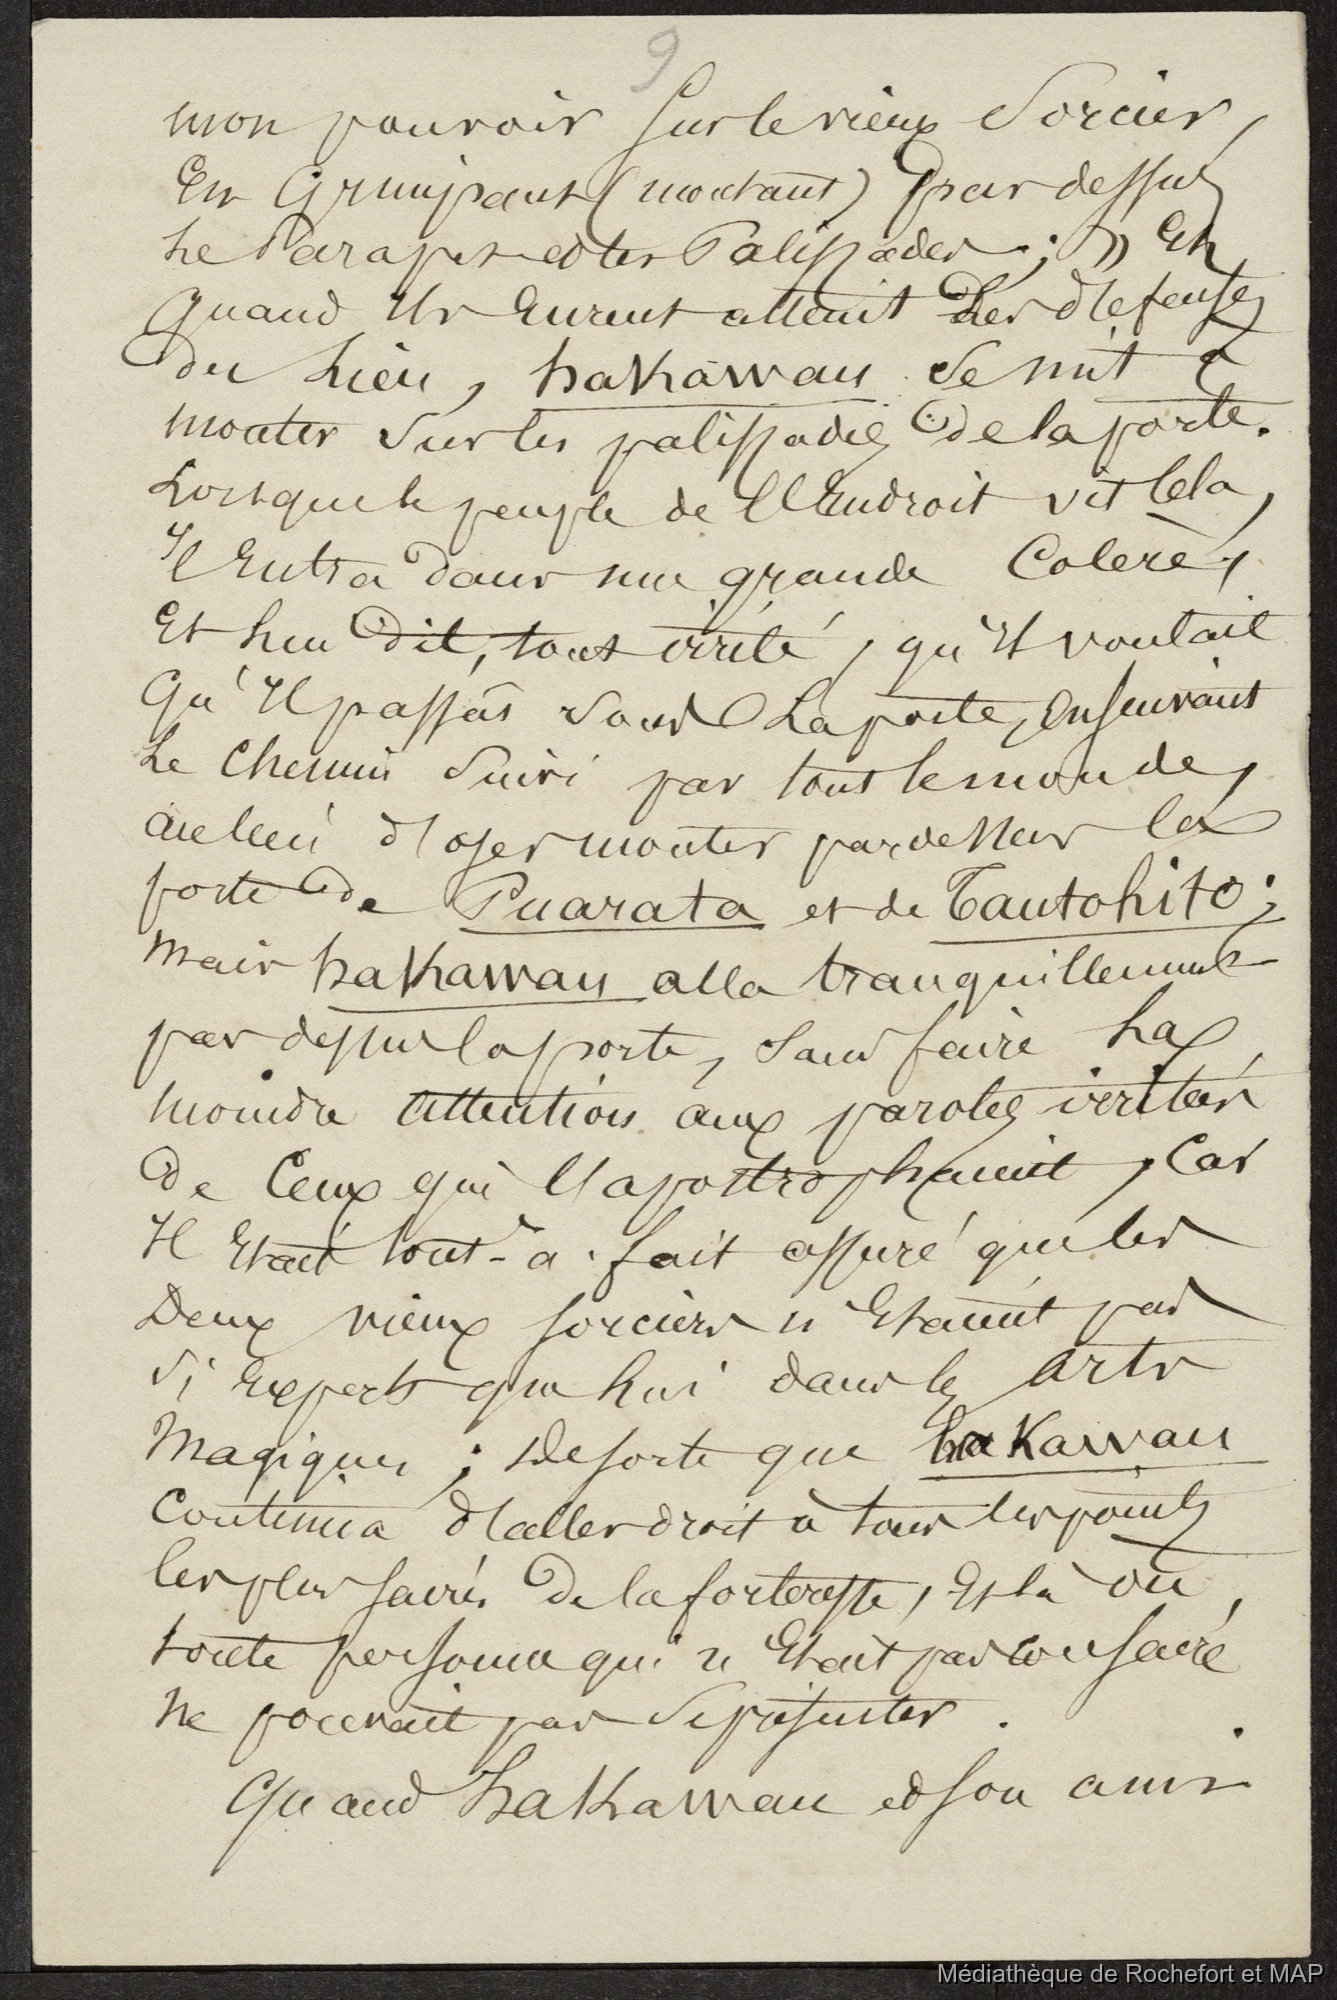 9
mon pouvoir sur le vieux Sorcier,
En Grimpant (montant) par dessus
Le Parapet et les Palissades ; » Et
quand Ils Eurent atteint Les défenses
du Lieu, hakawau se mit à
monter sur les palissades de la porte.
Lorsque le peuple de l'Endroit vit cela,
Il Entra dans une grande Colère,
Et lui dit, tout irrité, qu'Il voulait
Qu'Il passât sous La porte, En suivant
Le Chemin Suivi par tout le monde,
au lieu d'oser monter par dessus la
porte de Puarata et de Tautohito ;
Mais hakawau alla tranquillement
par dessus la porte, sans faire La
moindre attention aux paroles irritées
de Ceux qui l'apostrophaient, Car
Il Etait tout-a-fait assuré que les
Deux vieux sorciers n'Etaient pas
Si Experts que Lui dans les arts
Magiques ; de sorte que hakawau
Continua d'aller droit à tous les points
les plus sacrés de la forteresse, Et là où,
toute personne qui n'Etait pas consacré
Ne pouvait pas se présenter.
Quand hakawau et son ami
Médiathèque de Rochefort et MAP